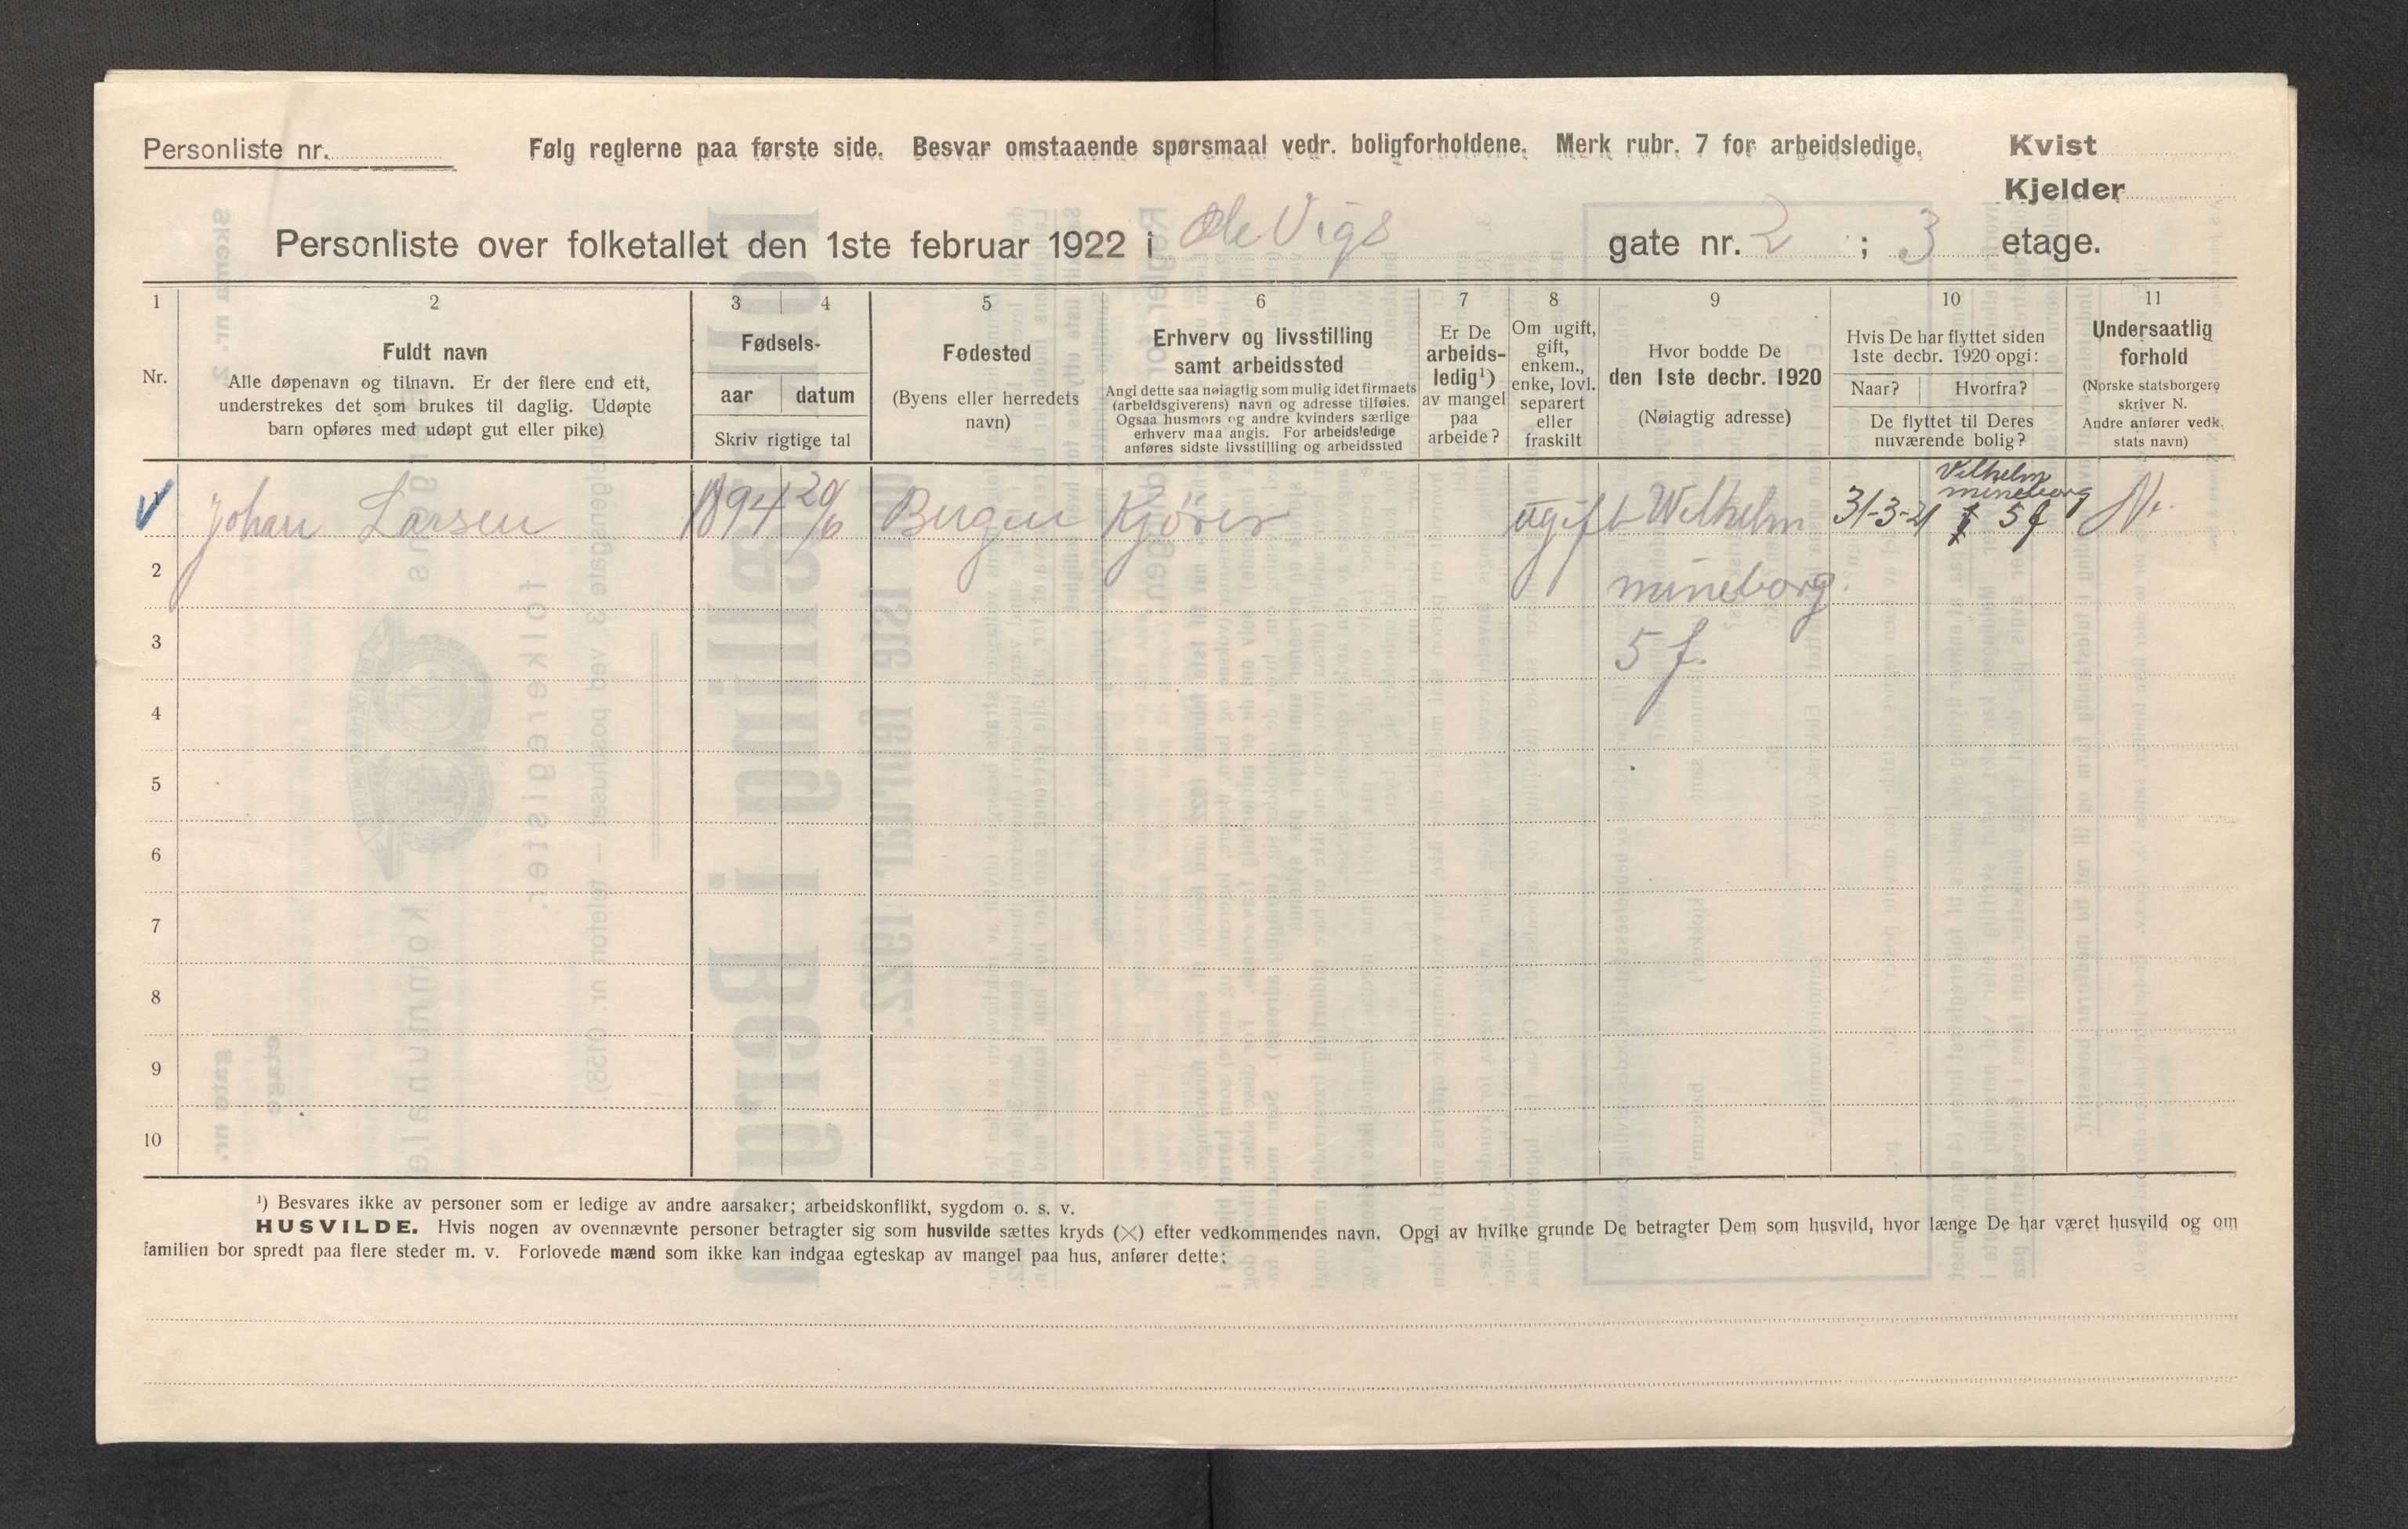 Personliste nr.
Følg reglerne paa første side. Besvar omstaaende spørsmaal vedr. boligforholdene. Merk rubr. 7 for arbeidsledige.
Kvist
Kjelder
Personliste over folketallet den 1ste februar 1922 i Ole Vigs gate nr. 2 ; 3 etage.
1 2 3 4 5 6 7 8 9 10 11
Nr.
Fuldt navn
Alle døpenavn og tilnavn. Er der flere end ett,
understrekes det som brukes til daglig. Udøpte
barn opføres med udøpt gut eller pike)
Fødsels-
aar datum
Skriv rigtige tal
Fødested
(Byens eller herredets
navn)
Erhverv og livsstilling
samt arbeidssted
Angi dette saa nøiagtig som mulig idet firmaets
(arbeidsgiverens) navn og adresse tilføies.
Ogsaa husmors og andre kvinders særlige
erhverv maa angis. For arbeidsledige
anføres sidste livsstilling og arbeidssted
Er De
arbeids-
ledig¹)
av mangel
paa
arbeide?
Om ugift,
gift,
enkem.,
enke, lovl.
separert
eller
fraskilt
Hvor bodde De
den 1ste decbr. 1920
(Nøiagtig adresse)
Hvis De har flyttet siden
1ste decbr. 1920 opgi:
Naar? Hvorfra?
De flyttet til Deres
nuværende bolig?
Undersaatlig
forhold
(Norske statsborgere
skriver N.
Andre anfører vedk.
stats navn)
Johan Larsen 1894 20/6 Bergen Kjörer ugift Wilhelm 31-3-21 Vilhelm
mineborg
5 f N.
mineborg.
5 f.
2
3
4
5
6
7
8
9
10
¹) Besvares ikke av personer som er ledige av andre aarsaker; arbeidskonflikt, sygdom o. s. v.
HUSVILDE. Hvis nogen av ovennævnte personer betragter sig som husvilde sættes kryds (×) efter vedkommendes navn. Opgi av hvilke grunde De betragter Dem som husvild, hvor længe De har været husvild og om
familien bor spredt paa flere steder m. v. Forlovede mænd som ikke kan indgaa egteskap av mangel paa hus, anfører dette: